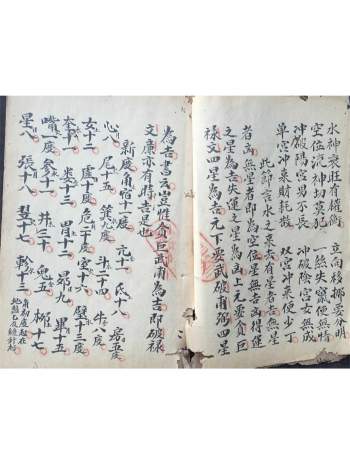 水神衰旺有權衡 立向移挪要分明
空位流神莫犯 一然失竅便無情
冲破陽宮男不長 冲破陰宮女無成
單宮冲來財耗散 双宮冲來便少丁
此節言水之來去有星者吉無星
者凶無星者即為空位星無吉凶得運
之星為吉失運之星為凶上元貪巨
祿文四星為吉元下要武破甫弼四星
為吉書云豈惟貪巨武甫為吉即破祿
文廉亦有時吉是也
新度角宿十一度 亢十一 氐十八 房五度
心八 尾十五 箕九度 斗二十四 牛八度
女十一 虛十度 危二十 室十六 壁十三度
奎十一 婁十三 胃十二 昴九 畢十五
嘴一度 參十一 井三十一 鬼五 柳十七
星八 張十八 翌十七 軫十三